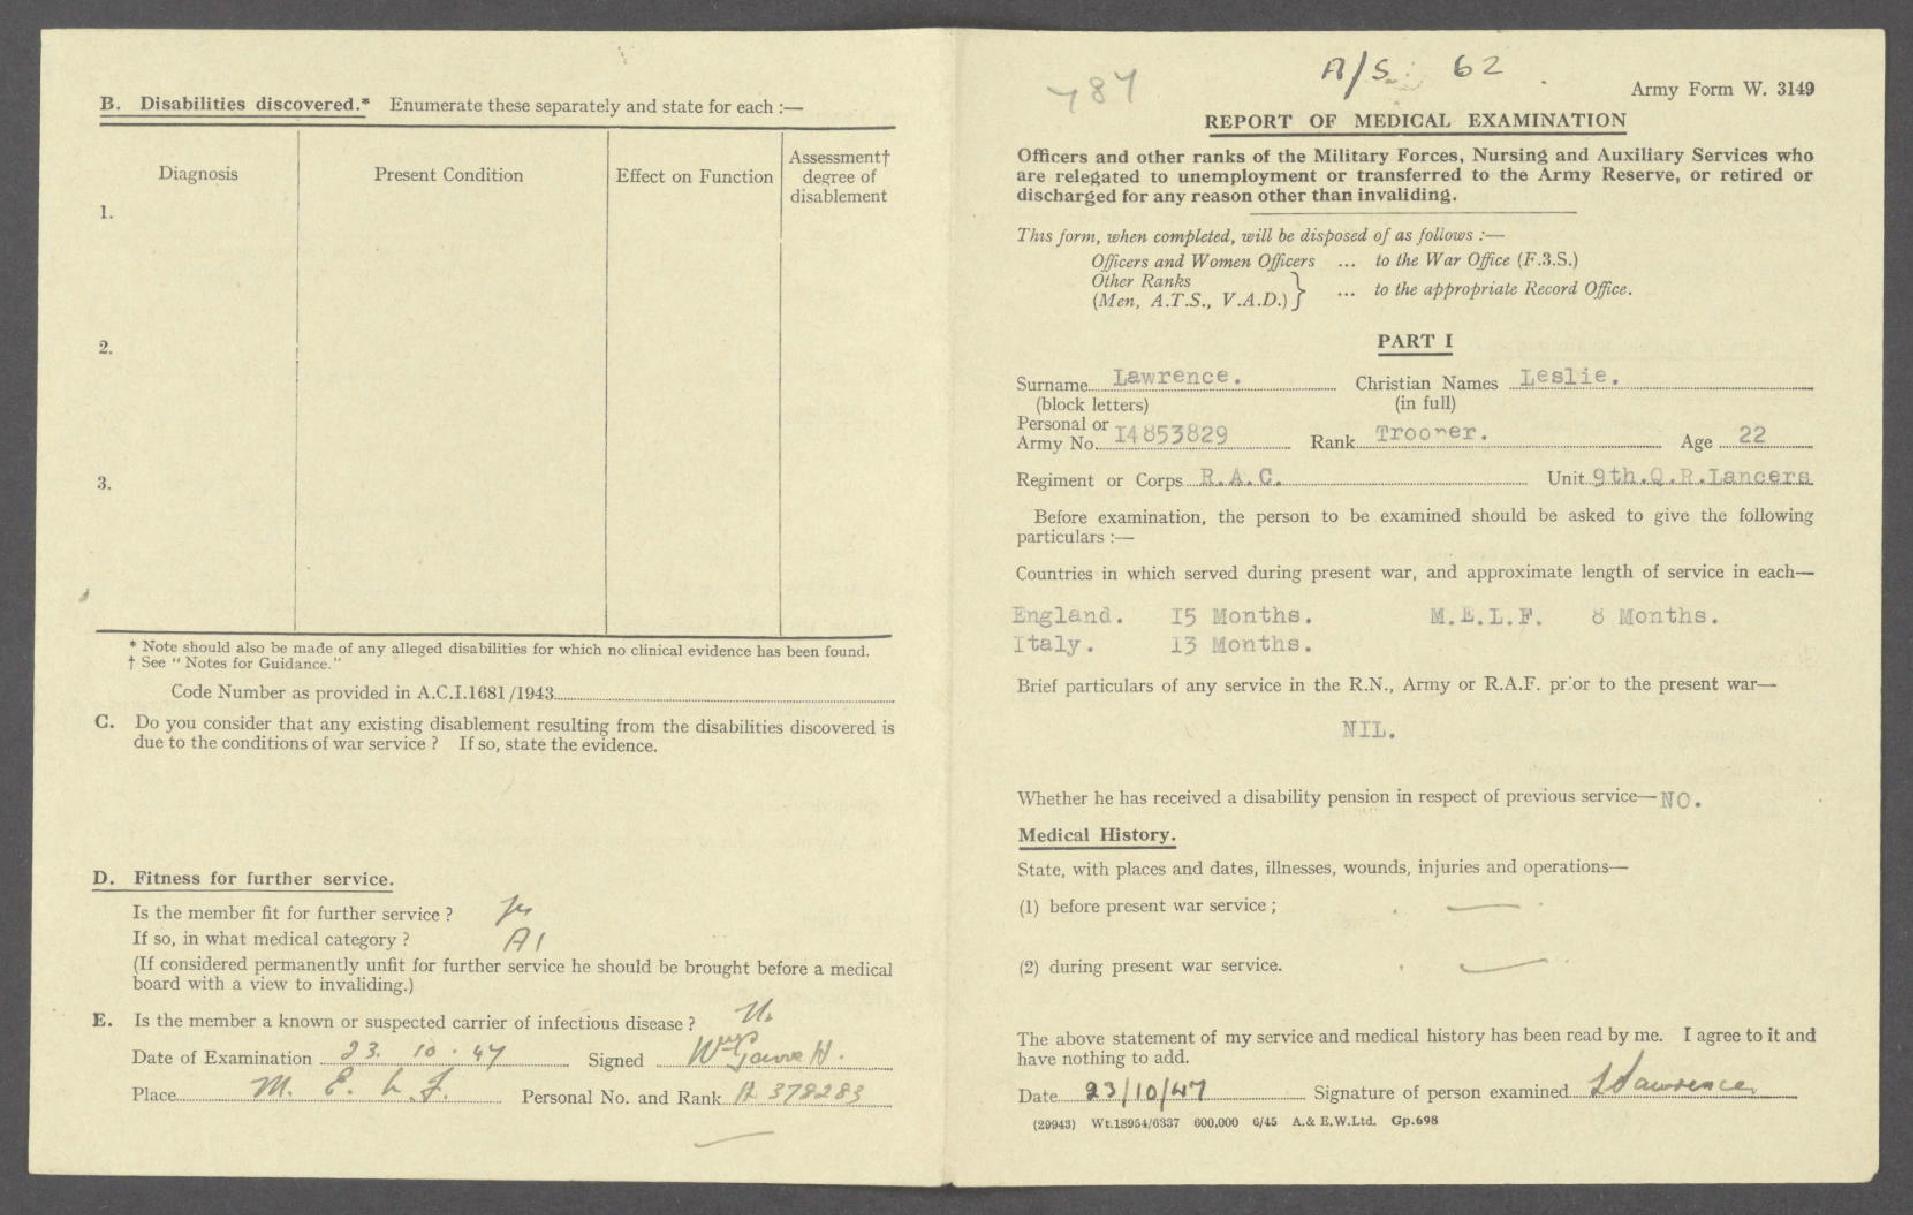 B. Disabilities discovered.* Enumerate these separately and state for each :—
Diagnosis
Present Condition
Effect on Function
Assessment†
degree of
disablement
1.
2.
3.
* Note should also be made of any alleged disabilities for which no clinical evidence has been found.
† See "Notes for Guidance."
Code Number as provided in A.C.I.1681/1943
C. Do you consider that any existing disablement resulting from the disabilities discovered is
due to the conditions of war service ? If so, state the evidence.
D. Fitness for further service.
Is the member fit for further service ? Yes
If so, in what medical category ? A1
(If considered permanently unfit for further service he should be brought before a medical
board with a view to invaliding.)
E. Is the member a known or suspected carrier of infectious disease ? No
Date of Examination 23. 10. 47 Signed
Place M. E. L. F. Personal No. and Rank 378283
787
A/S: 62
Army Form W. 3149
REPORT OF MEDICAL EXAMINATION
Officers and other ranks of the Military Forces, Nursing and Auxiliary Services who
are relegated to unemployment or transferred to the Army Reserve, or retired or
discharged for any reason other than invaliding.
This form, when completed, will be disposed of as follows :—
Officers and Women Officers ... to the War Office (F.3.S.)
Other Ranks
(Men, A.T.S., V.A.D.)} ... to the appropriate Record Office.
PART I
Surname Lawrence. Christian Names Leslie.
(block letters) (in full)
Personal or
Army No. I4853829 Rank Trooper. Age 22
Regiment or Corps R.A.C. Unit 9th.Q.R.Lancers
Before examination, the person to be examined should be asked to give the following
particulars :—
Countries in which served during present war, and approximate length of service in each—
England. I5 Months. M.E.L.F. 8 Months.
Italy. I3 Months.
Brief particulars of any service in the R.N., Army or R.A.F. prior to the present war—
NIL.
Whether he has received a disability pension in respect of previous service—NO.
Medical History.
State, with places and dates, illnesses, wounds, injuries and operations—
(1) before present war service ; —
(2) during present war service. —
The above statement of my service and medical history has been read by me. I agree to it and
have nothing to add.
Date 23/10/47 Signature of person examined L Lawrence
(29943) Wt.18954/0337 600,000 6/45 A.& E.W.Ltd. Gp.698